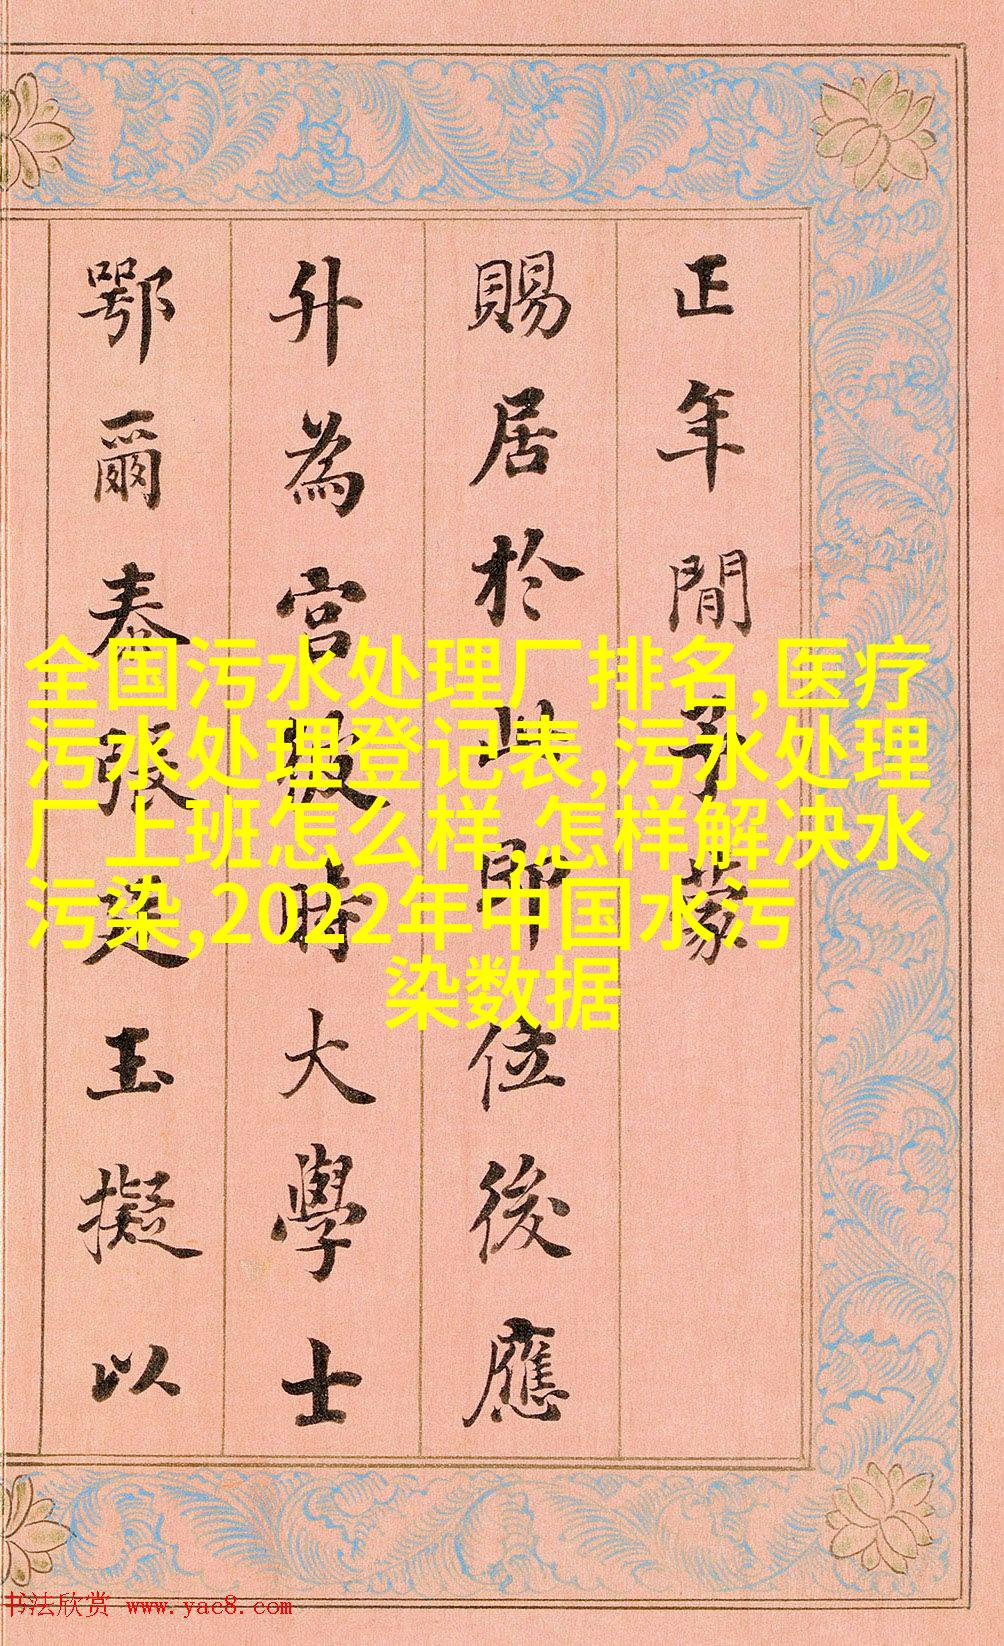 正年間予蒙
賜居於此即位後應
升為宫彼時大學士
鄂爾泰張廷玉擬以
全国污水处理厂排名,医疗
污水处理登记表,污水处理
厂上班怎么样,怎样解决水
污染,2022年中国水污
染数据
书法欣赏 www.yac8.com